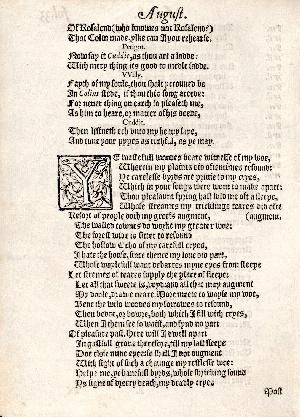 August.
Of Rosalend (who knowes not Rosalend?)
That Colin made, ylke can I you rehearse.
Perigot.
Now say it Cuddie, as thou art a ladde:
With mery thing its good to medle sadde.
Willy.
Fayth of my soule, thou shalt ycrouned be
In Colins stede, if thou this song areede:
For neuer thing on earth so pleaseth me,
As him to heare, or matter of his deede.
Cuddie.
Then listneth ech vnto my heauy laye,
And tune your pypes as ruthful, as ye may.
YE wastefull woodes beare witnesse of my woe,
Wherein my plaints did oftentimes resound:
Ye carelesse byrds are priuie to my cryes,
Which in your songs were wont to make a part:
Thou pleasaunt spring hast luld me oft a sleepe,
Whose streames my tricklinge teares did ofte
Resort of people doth my greefs augment, (augment.
The walled townes do worke my greater woe:
The forest wide is fitter to resound
The hollow Echo of my carefull cryes,
I hate the house, since thence my loue did part,
Whose waylefull want debarres myne eyes from sleepe
Let stremes of teares supply the place of sleepe:
Let all that sweete is, voyd: and all that may augment
My doole, drawe neare. More meete to wayle my woe,
Bene the wild woodes my sorrowes to resound,
Then bedde, or bowre, both which I fill with cryes,
When I them see so waist, and fynd no part
Of pleasure past. Here will I dwell apart
In gastfull groue therefore, till my last sleepe
Doe close mine eyes: so shall I not augment
With sight of such a chaunge my restlesse woe:
Helpe me, ye banefull byrds, whose shrieking sound
Ys signe of dreery death, my deadly cryes
Most